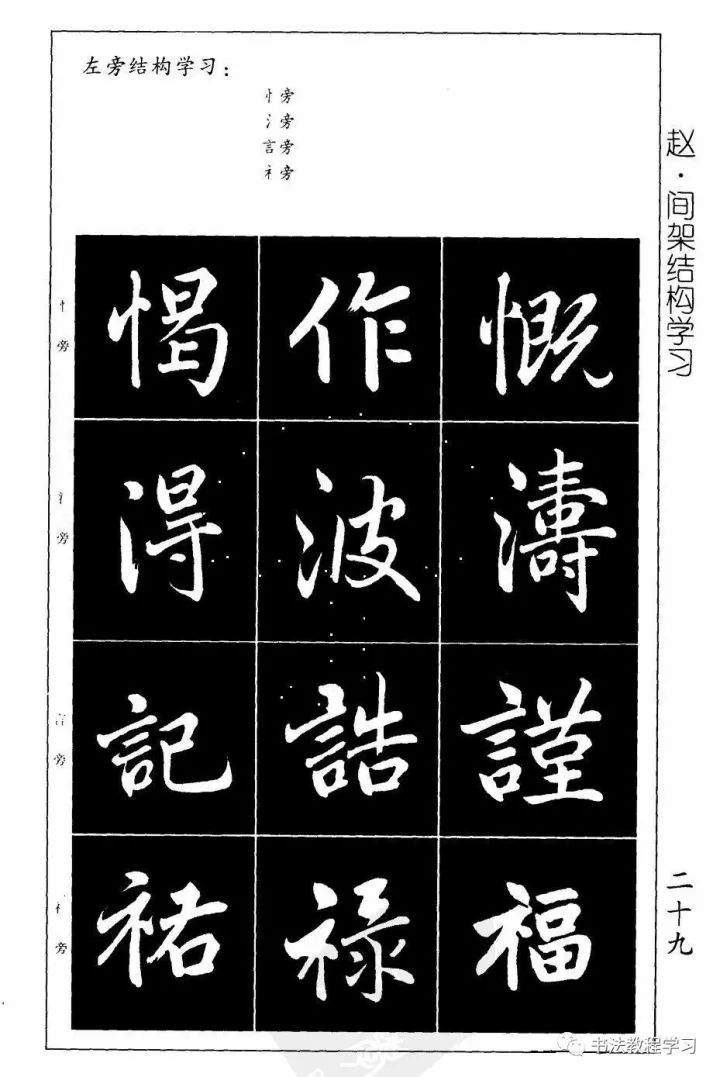 左旁结构学习：
忄旁
氵旁
言旁
礻旁
赵·间架结构学习
忄旁
愒 作 慨
氵旁
淂 波 濤
言旁
記 誥 謹
礻旁
祐 禄 福
二十九
书法教程学习